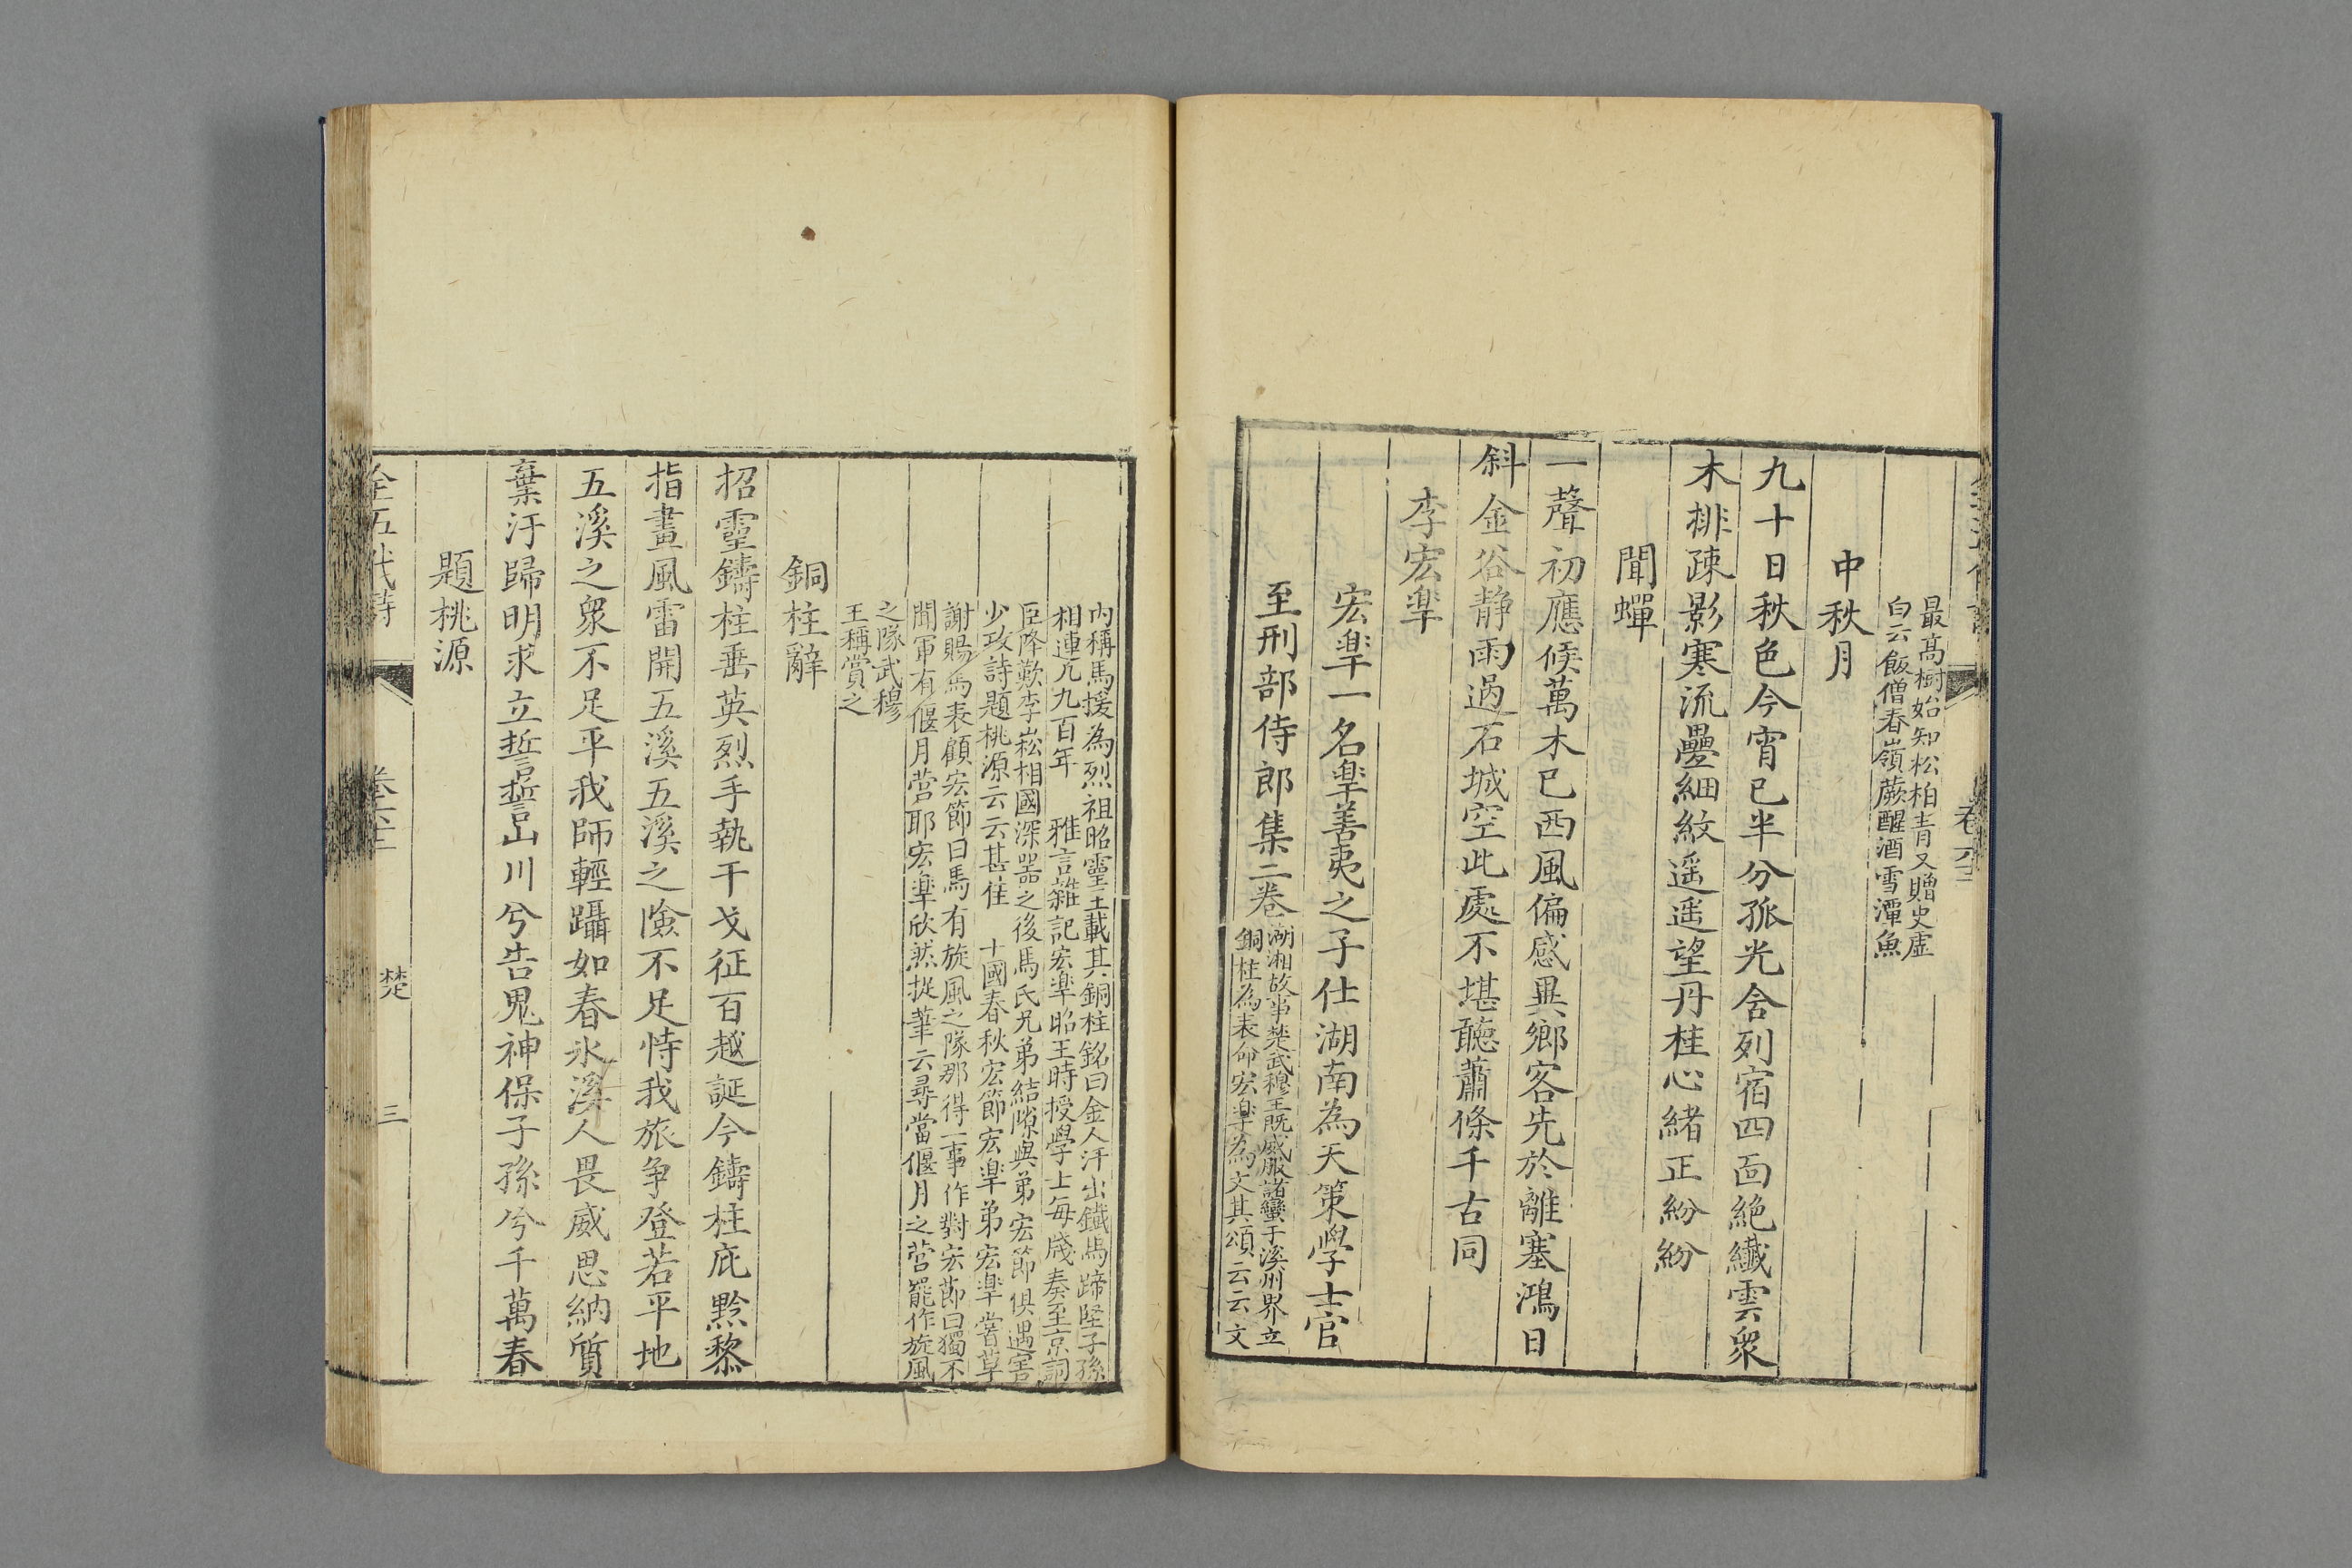 最高樹始知松柏青又贈史虛
白云飯僧春嶺蕨醒酒雪潭魚
中秋月
九十日秋色今宵已半分孤光含列宿四面絕纖雲衆
木排疎影寒流疊細紋遥遥望丹桂心緒正紛紛
聞蟬
一聲初應候萬木已西風偏感異鄉客先於離塞鴻日
斜金谷静雨過石城空此處不堪聽蕭條千古同
李宏臯
宏臯一名臯善夷之子仕湖南為天策學士官
至刑部侍郎集二卷
湖湘故事楚武穆王既威服諸蠻于溪州界立
銅柱為表命宏臯為文其頌云云文
內稱馬援為烈祖昭靈王載其銅柱銘曰金人汗出鐵馬蹄堅子孫
相連九九百年 雅言雜記宏臯昭王時授學士每牋奏至京詞
臣降歎李崧相國深器之後馬氏兄弟結隙與弟宏節俱遇害
少攻詩題桃源云云甚佳 十國春秋宏節宏臯弟宏臯嘗草
謝賜馬表顧宏節曰馬有旋風之隊那得一事作對宏節曰獨不
聞軍有偃月營耶宏臯欣然捉筆云尋當偃月之營罷作旋風
之隊武穆
王稱賞之
銅柱辭
招靈鑄柱垂英烈手執干戈征百越誕今鑄柱庇黔黎
指畫風雷開五溪五溪之險不足恃我旅争登若平地
五溪之衆不足平我師輕躡如春氷溪人畏威思納質
棄汙歸明求立誓誓山川兮告鬼神保子孫兮千萬春
題桃源
全五代詩
楚
三